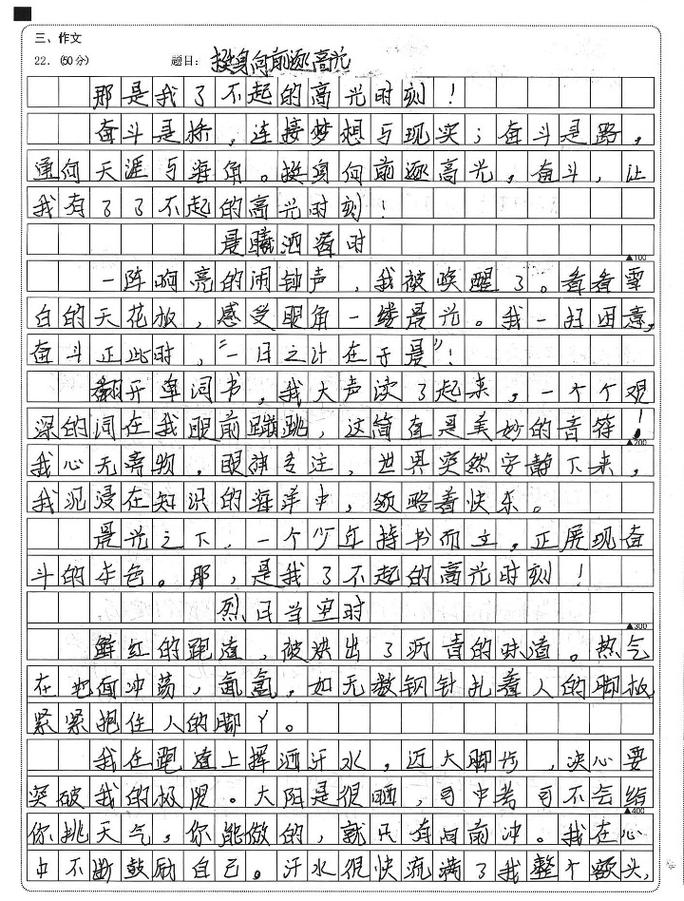 三、作文
22. (50分) 题目: 挺身向前逐高光
那是我了不起的高光时刻！
奋斗是桥，连接梦想与现实；奋斗是路，
通向天涯与海角。挺身向前逐高光，奋斗，让
我有了了不起的高光时刻！
晨曦洒窗时
▲100
一阵响亮的闹钟声，我被唤醒了。看看雪
白的天花板，感受眼角一缕晨光。我一扫困意，
奋斗正此时，“一日之计在于晨”！
翻开单词书，我大声读了起来，一个个艰
深的词在我眼前蹦跳，这简直是美妙的音符！
▲200
我心无旁物，眼神专注，世界突然安静下来，
我沉浸在知识的海洋中，领略着快乐。
晨光之下，一个少年持书而立，正展现奋
斗的本色。那，是我了不起的高光时刻！
烈日当空时
▲300
鲜红的跑道，被烘出了沥青的味道。热气
在地面冲荡，氤氲，如无数钢针扎着人的脚板
紧紧抱住人的脚丫。
我在跑道上挥洒汗水，迈大脚步，决心要
突破我的极限。太阳是很晒，可中考可不会给
▲400
你挑天气，你能做的，就只有向前冲。我在心
中不断鼓励自己。汗水很快流满了我整个额头，